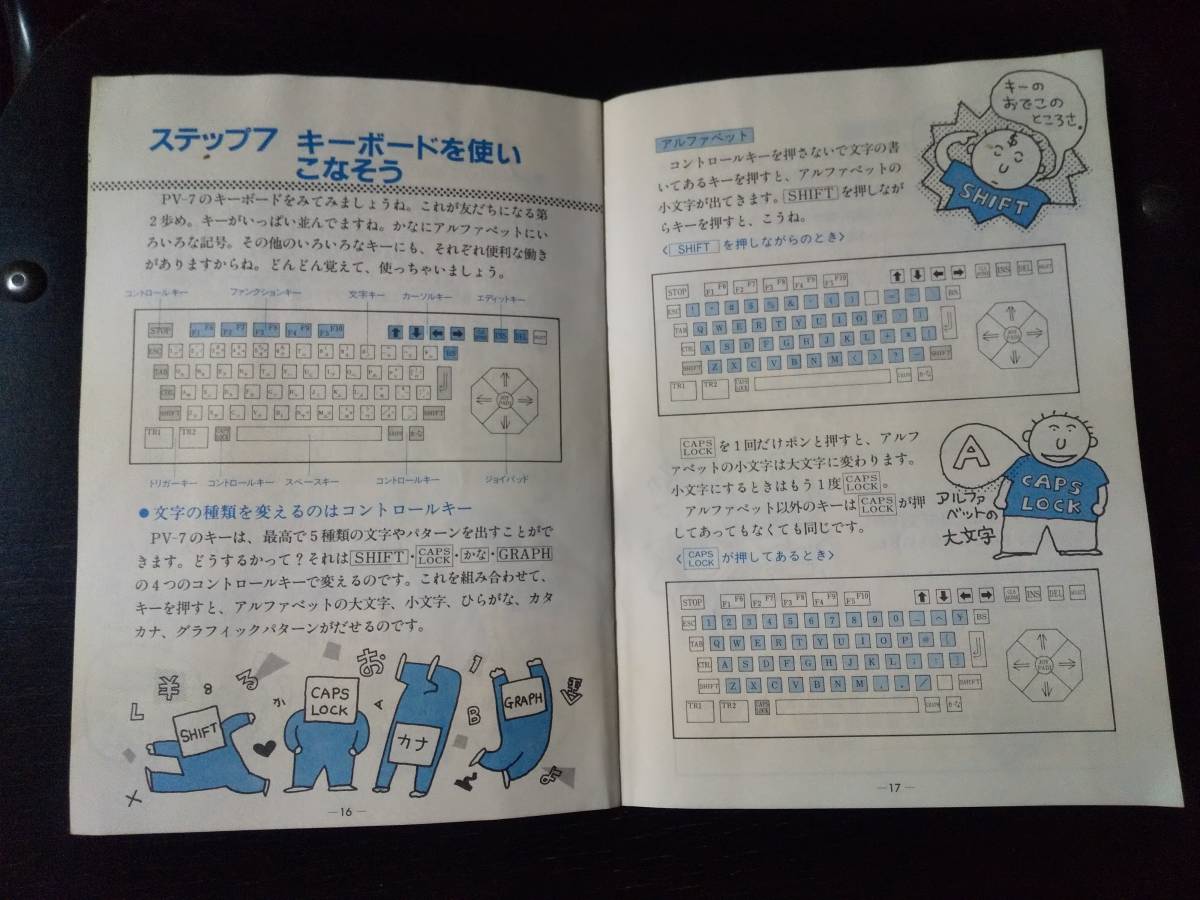 ステップ7 キーボードを使い
こなそう
PV-7のキーボードをみてみましょうね。これが友だちになる第
2歩め。キーがいっぱい並んでますね。かなにアルファベットにい
ろいろな記号。その他のいろいろなキーにも、それぞれ便利な働き
がありますからね。どんどん覚えて、使っちゃいましょう。
コントロールキー ファンクションキー 文字キー カーソルキー エディットキー
STOP F1 F6 F2 F7 F3 F8 F4 F9 F5 F10 ↑ ↓ ← → INS DEL
ESC BS
TAB
CTRL
SHIFT SHIFT
TR1 TR2 CAPS LOCK かな
JOY PAD
トリガーキー コントロールキー スペースキー コントロールキー ジョイパッド
●文字の種類を変えるのはコントロールキー
PV-7のキーは、最高で5種類の文字やパターンを出すことがで
きます。どうするかって?それはSHIFT・CAPS LOCK・かな・GRAPH
の4つのコントロールキーで変えるのです。これを組み合わせて、
キーを押すと、アルファベットの大文字、小文字、ひらがな、カタ
カナ、グラフィックパターンがだせるのです。
L ¥ 8 る か お A 1 B
SHIFT
CAPS
LOCK
カナ
GRAPH
X ん
—16—
アルファベット
コントロールキーを押さないで文字の書
いてあるキーを押すと、アルファベットの
小文字が出てきます。SHIFTを押しなが
らキーを押すと、こうね。
キーの
おでこの
ところさ。
SHIFT
〈SHIFTを押しながらのとき〉
STOP F1 F6 F2 F7 F3 F8 F4 F9 F5 F10 ↑ ↓ ← → INS DEL
ESC ! " # $ % & ' ( ) BS
TAB Q W E R T Y U I O P
CTRL A S D F G H J K L + *
SHIFT Z X C V B N M < > ? SHIFT
TR1 TR2 CAPS LOCK かな
JOY PAD
CAPS LOCKを1回だけポンと押すと、アルフ
ァベットの小文字は大文字に変わります。
小文字にするときはもう1度CAPS LOCK。
アルファベット以外のキーはCAPS LOCKが押
してあってもなくても同じです。
A
アルファ
ベットの
大文字
CAPS
LOCK
〈CAPS LOCKが押してあるとき〉
STOP F1 F6 F2 F7 F3 F8 F4 F9 F5 F10 ↑ ↓ ← → INS DEL
ESC 1 2 3 4 5 6 7 8 9 0 − ^ ¥ BS
TAB Q W E R T Y U I O P @ [
CTRL A S D F G H J K L ; : ]
SHIFT Z X C V B N M , . / SHIFT
TR1 TR2 CAPS LOCK かな
JOY PAD
—17—